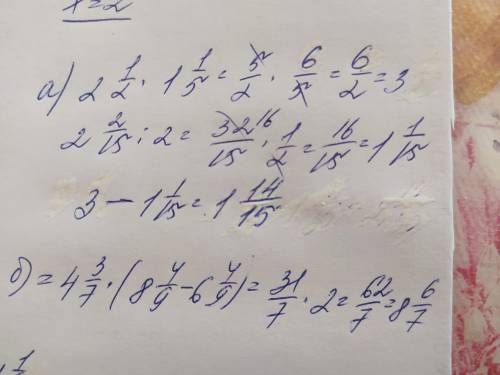 x=2
а) 2 1/2 · 1 1/5 = 5/2 · 6/5 = 6/2 = 3
2 2/15 : 2 = 32 16/15 · 1/2 = 16/15 = 1 1/15
3 - 1 1/15 = 1 14/15
б) = 4 3/7 · (8 4/9 - 6 4/9) = 31/7 · 2 = 62/7 = 8 6/7